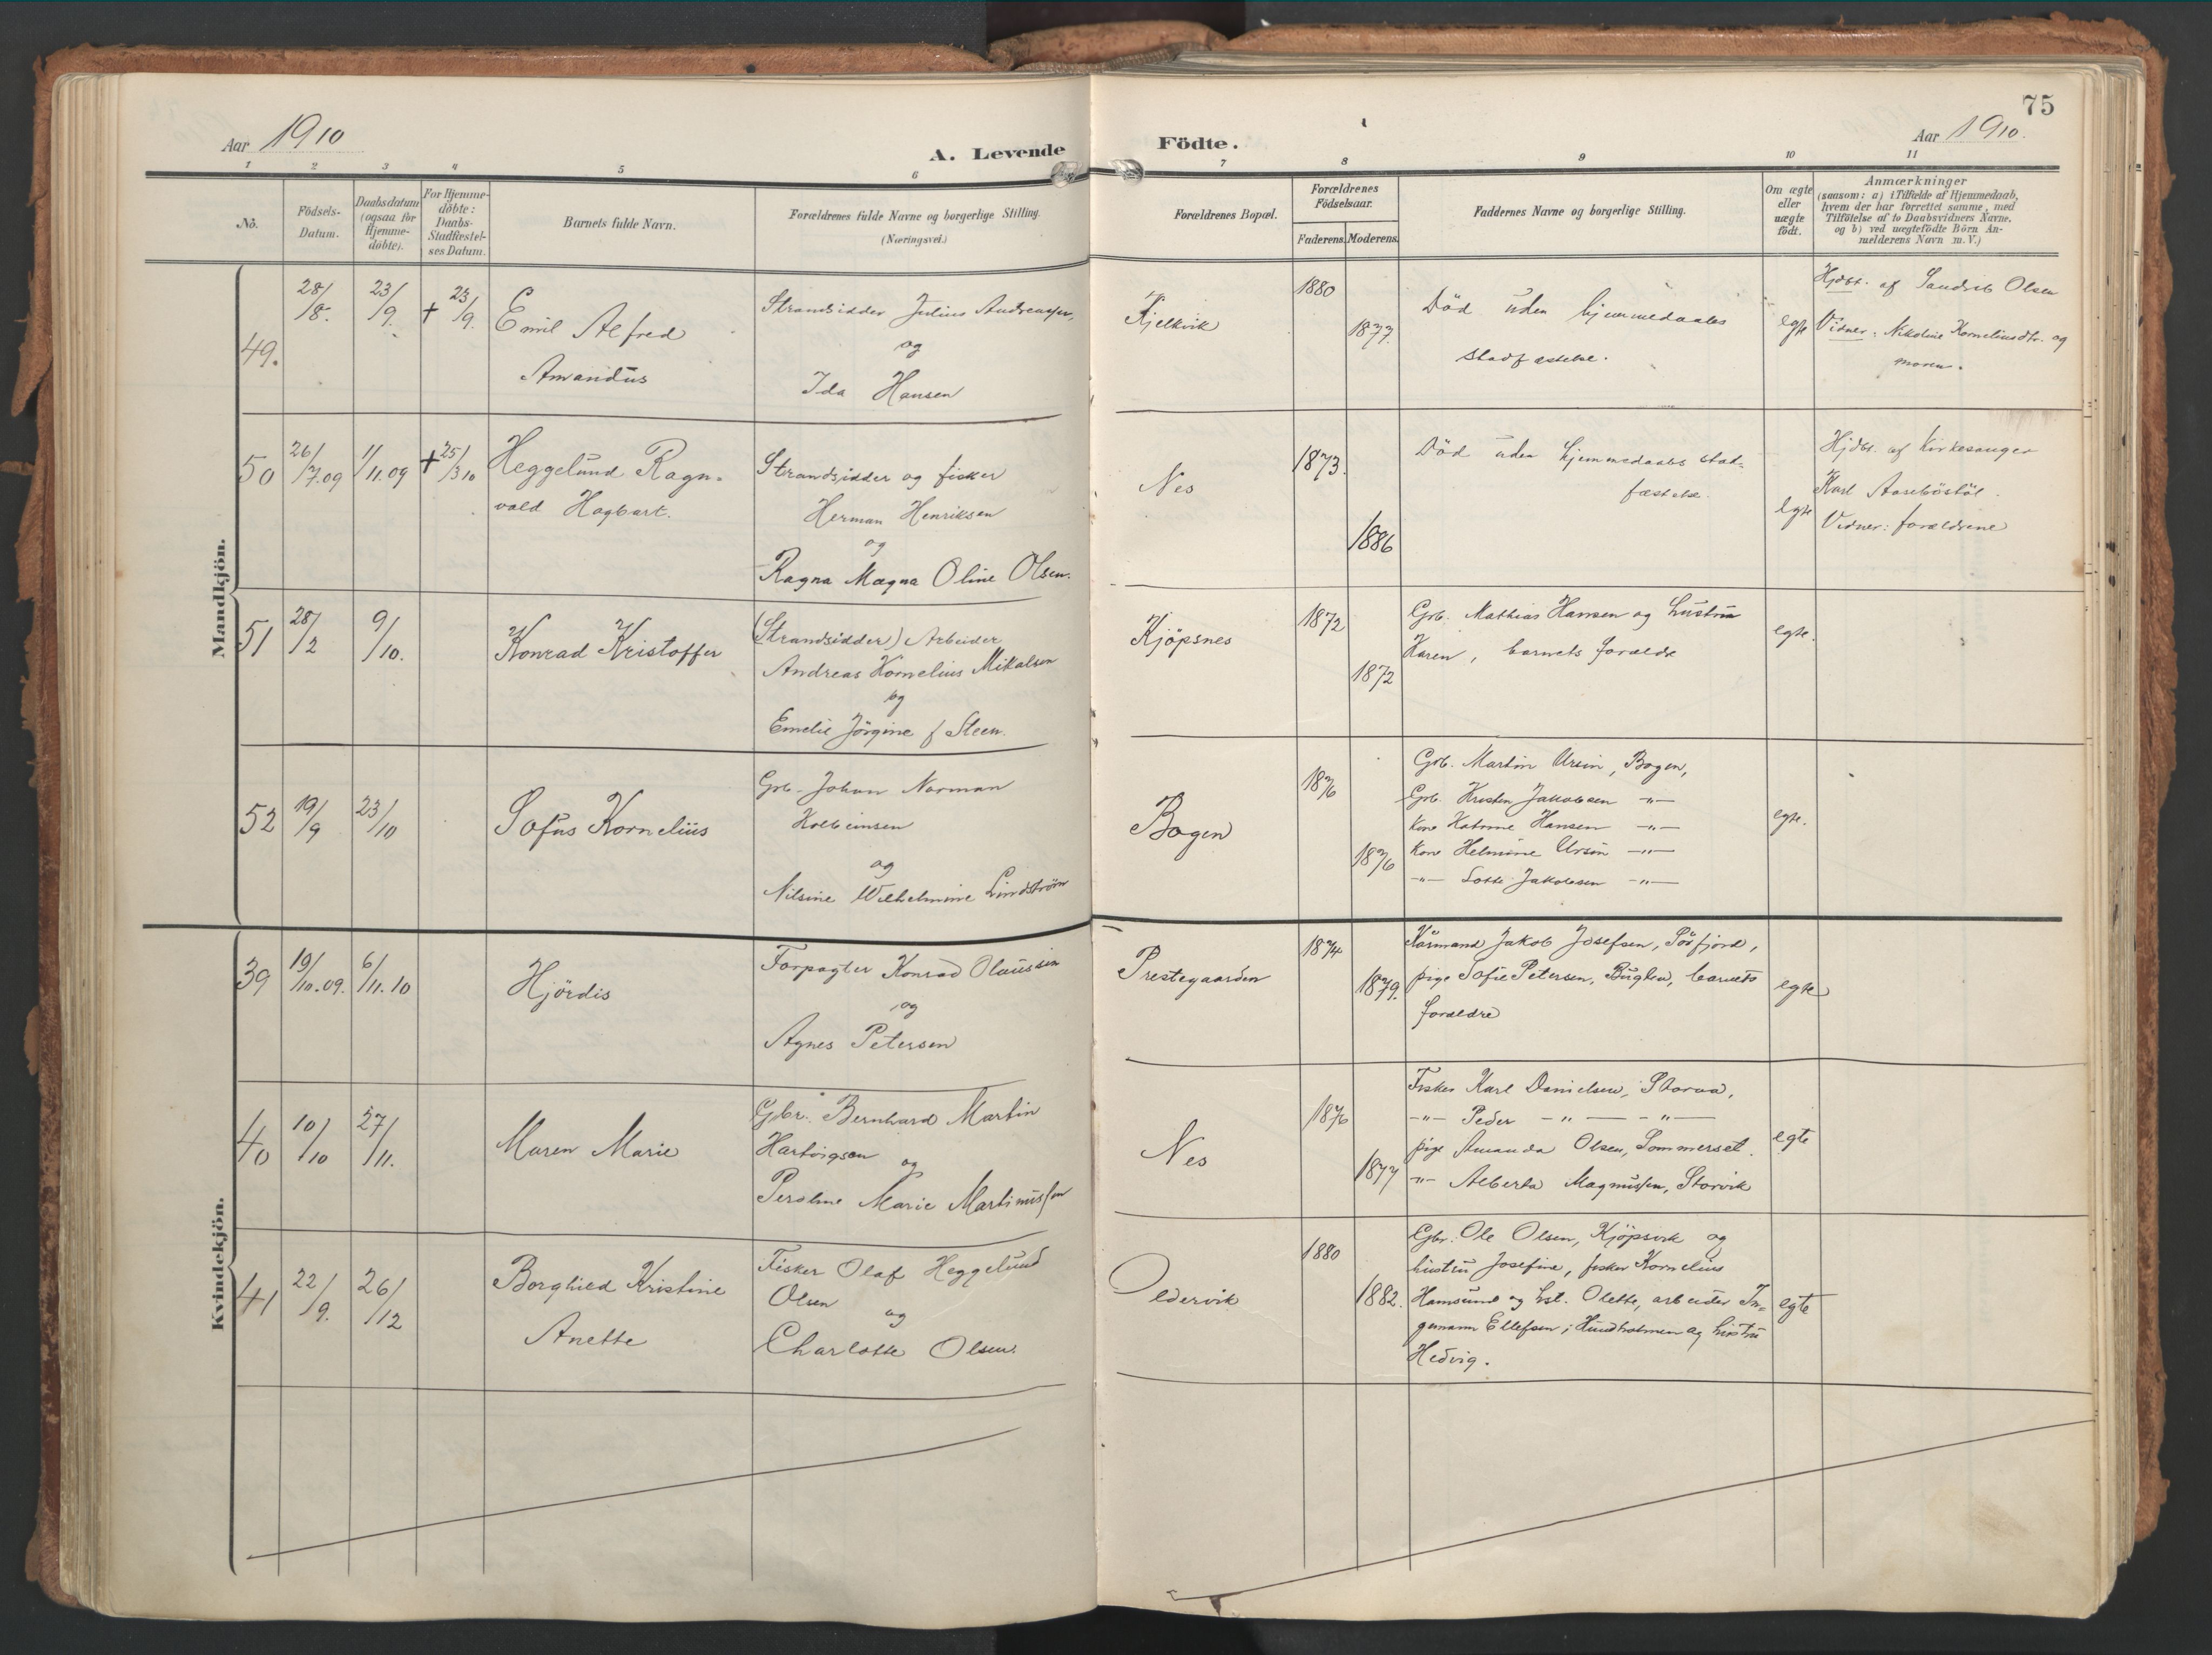 75
Aar 1910
A. Levende
Födte.
Aar 1910.
1 2 3 4 5 6 7 8 9 10 11
No.
Födsels-
Datum.
Daabsdatum
(ogsaa for
Hjemme-
döbte).
For Hjemme-
döbte:
Daabs-
Stadfæstel-
ses Datum.
Barnets fulde Navn.
Forældrenes fulde Navne og borgerlige Stilling.
(Næringsvei.)
Forældrenes Bopæl.
Forældrenes
Födselsaar.
Faderens. Moderens.
Faddernes Navne og borgerlige Stilling.
Om ægte
eller
uægte
födt.
Anmærkninger
(saasom: a) i Tilfælde af Hjemmedaab,
hvem der har forrettet samme, med
Tilföielse af to Daabsvidners Navne,
og b) ved uægtefödte Börn An-
melderens Navn m. V.)
Mandkjön.
49.
28/8.
23/9.
+ 23/9.
Emil Alfred
Amandus
Strandsidder Julius Andreassen,
og
Ida Hansen
Kjelkvik
1880
1877.
Död uden hjemmedaabs
stadfæstelse.
egte
Hjdbt. af Olsen
Vidner: Nikoline Korneliusdtr. og
moren.
50
26/7.09
1/11.09
+ 25/3 10
Heggelund Ragn-
vald Hagbart.
Strandsidder og fisker
Herman Henriksen
og
Ragna Magna Oline Olsen.
Nes
1873.
1886
Död uden hjemmedaabs stad-
fæstelse.
egte
Hjdbt. af kirkesanger
Karl Aaseböstöl.
Vidner: forældrene
51
28/2
9/10.
Konrad Kristoffer
(Strandsidder) Arbeider
Andreas Kornelius Mikalsen
og
Emelie Jörgine f Steen.
Kjöpsnes
1872
1872
Grb. Mathias Hansen og hustru
Karen, barnets forældre
egte.
52
19/9
23/10
Sofus Kornelius
Grb. Johan Norman
Kolbeinsen
og
Nilsine Wilhelmine Lindström
Bogen
1876
1876
Grb. Martin Ursin, Bogen,
Grb. Kristen Jakobsen —"—
Kone Katrine Hansen —"—
Kone Helmine Ursin —"—
—"— Lotte Jakobsen —"—
egte.
Kvindekjön.
39
19/10.09.
6/11.10
Hjördis
Forpagter Konrad Olaussen
og
Agnes Petersen
Prestegaarden
1874
1879.
Kårmand Jakob Josefsen, Sörfjord,
pige Sofie Petersen, barnets
forældre
egte
40
10/10
27/11.
Maren Marie
Gbr. Bernhard Martin
Hartvigsen og
Peroline Marie Martinussen
Nes
1876
1877
Fisker Karl Danielsen, Storaa,
—"— Peder —"— —"—
pige Amanda Olsen, Sommerset.
—"— Alberta Magnussen, Storvik
egte
41
22/9.
26/12
Borghild Kristine
Anette
Fisker Olaf Heggelund
Olsen og
Charlotte Olsen.
Oldervik
1880
1882.
Gbr. Ole Olsen, Kjöpsvik og
hustru Josefine, fisker Kornelius
Hamsund og hst. Olette, arbeider In-
gemann Ellefsen, Hundholmen og hustru
Hedvig.
egte